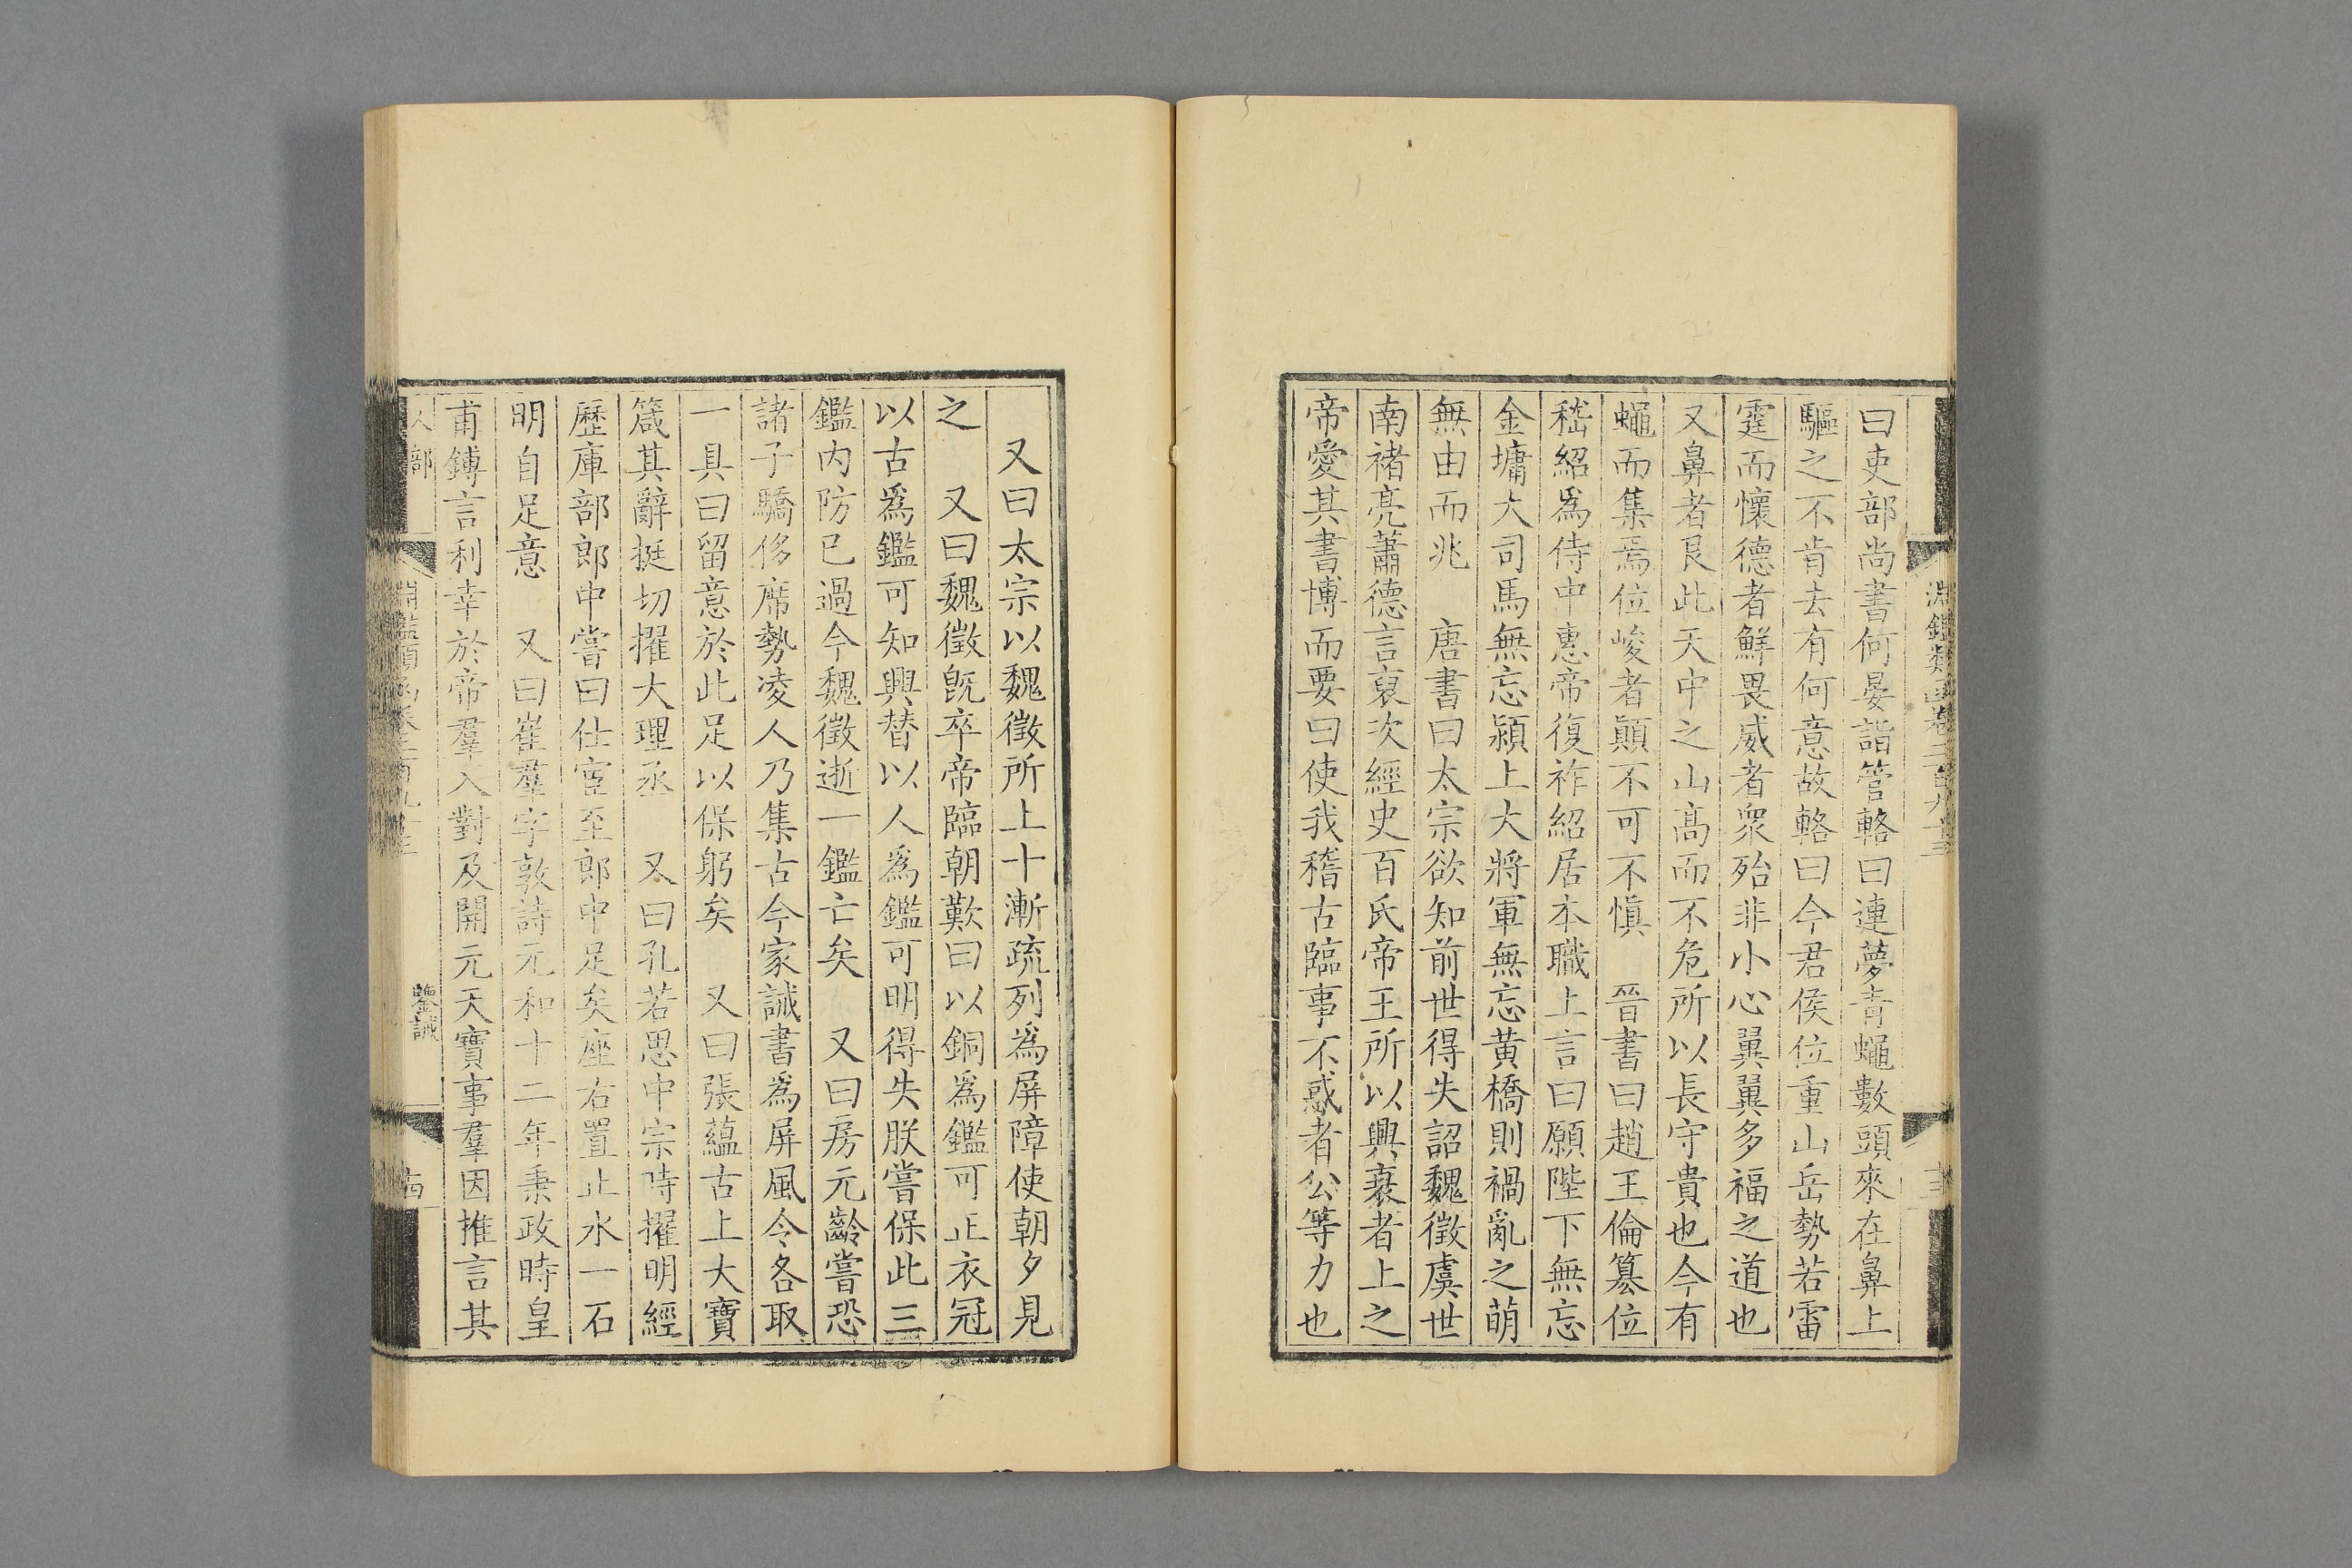 曰吏部尚書何晏詣管輅曰連夢青蠅數頭來在鼻上
驅之不肯去有何意故輅曰今君侯位重山岳勢若雷
霆而懷德者鮮畏威者眾殆非小心翼翼多福之道也
又鼻者艮此天中之山高而不危所以長守貴也今有
蠅而集焉位峻者顛不可不慎　晉書曰趙王倫篡位
嵇紹爲侍中惠帝復祚紹居本職上言曰願陛下無忘
金墉大司馬無忘潁上大將軍無忘黃橋則禍亂之萌
無由而兆　唐書曰太宗欲知前世得失詔魏徵虞世
南褚亮蕭德言裒次經史百氏帝王所以興衰者上之
帝愛其書博而要曰使我稽古臨事不惑者公等力也
　又曰太宗以魏徵所上十漸疏列爲屏障使朝夕見
之　又曰魏徵旣卒帝臨朝歎曰以銅爲鑑可正衣冠
以古爲鑑可知興替以人爲鑑可明得失朕嘗保此三
鑑內防已過今魏徵逝一鑑亡矣　又曰房元齡嘗恐
諸子驕侈席勢凌人乃集古今家誡書爲屏風令各取
一具曰留意於此足以保躬矣　又曰張蘊古上大寶
箴其辭挺切擢大理丞　又曰孔若思中宗時擢明經
歷庫部郎中嘗曰仕宦至郎中足矣座右置止水一石
明自足意　又曰崔羣字敦詩元和十二年秉政時皇
甫鎛言利幸於帝羣入對及開元天寶事羣因推言其
人部
淵鑑類函卷二百九十三
鑒誡
十四